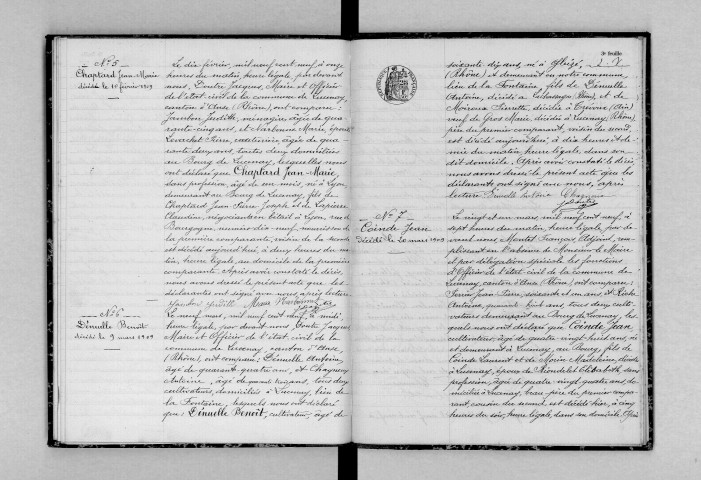 N° 5
Chaptard Jean-Marie
décédé le 10 février 1909
Le dix février, mil neuf cent neuf, à onze
heures du matin, heure légale, par devant
nous, Doutre Jacques, Maire et Officier
de l'état civil de la commune de Lucenay,
canton d'Anse (Rhône), ont comparu :
Jambon Judith, ménagère, âgée de qua-
rante-cinq ans, et Narbonne Marie, épouse
Pierre, âgée de qua-
rante deux ans, toutes deux domiciliées
au Bourg de Lucenay, lesquelles nous
ont déclaré que Chaptard Jean-Marie,
sans profession, âgé de un mois, né à Lyon,
demeurant au Bourg de Lucenay, fils de
Chaptard Jean Pierre Joseph et de Lapierre
Claudine, négociants en bétail à Lyon, rue de
Bourgogne, numéro dix-neuf, nourrisson de
la première comparante, voisin de la seconde
est décédé aujourd'hui, à deux heures du ma-
tin, heure légale, au domicile de la première
comparante. Après avoir constaté le décès,
nous avons dressé le présent acte que les
déclarantes ont signé avec nous, après lecture.
N° 6
Dénuelle Benoît
décédé le 9 mars 1909
Le neuf mars, mil neuf cent neuf, à midi
heure légale, par devant nous Doutre Jacques
Maire et Officier de l'état civil de la
commune de Lucenay, canton d'Anse,
(Rhône), ont comparu : Dénuelle Antoine,
âgé de quarante quatre ans, et Chagny
Antoine, âgé de ans, tous deux
cultivateurs, domiciliés à Lucenay, lieu de
la Fontaine, lesquels nous ont déclaré
que : Dénuelle Benoît, cultivateur, âgé de
3e feuille
soixante dix ans, né à Gleizé,
(Rhône) et demeurant en notre commune,
lieu de la Fontaine, fils de Dénuelle
Antoine, décédé à (Rhône), et de
Pierrette, décédée à Trévoux (Ain)
veuf de Gros Marie, décédée à Lucenay, (Rhône)
père du premier comparant, voisin du second,
est décédé aujourd'hui, à dix heures et de-
mie du matin, heure légale, dans son
dit domicile. Après avoir constaté le décès,
nous avons dressé le présent acte que les
déclarants ont signé avec nous, après
lecture.
N° 7
Coinde Jean
décédé le 20 mars 1909
Le vingt et un mars, mil neuf cent neuf, à
sept heures du matin, heure légale, par de-
vant nous Montet François Adjoint, rem-
plissant en l'absence de Monsieur le Maire
et par délégation spéciale les fonctions
d'Officier de l'état civil de la commune de
Lucenay, canton d'Anse (Rhône), ont comparu :
Jean Pierre, soixante et un ans, et
Antoine, quarante huit ans, tous deux culti-
vateurs demeurant au Bourg de Lucenay, les-
quels nous ont déclaré que Coinde Jean
cultivateur, âgé de quatre vingt huit ans, né
et demeurant à Lucenay, au Bourg, fils de
Coinde Laurent et de Morin Madeleine, décédés
à Lucenay, époux de Elisabeth, sans
profession, âgée de quatre vingt quatre ans, do-
miciliée à Lucenay, beau-père du premier compa-
rant voisin du second est décédé hier, à cinq
heures du soir, heure légale, dans son domicile. Après